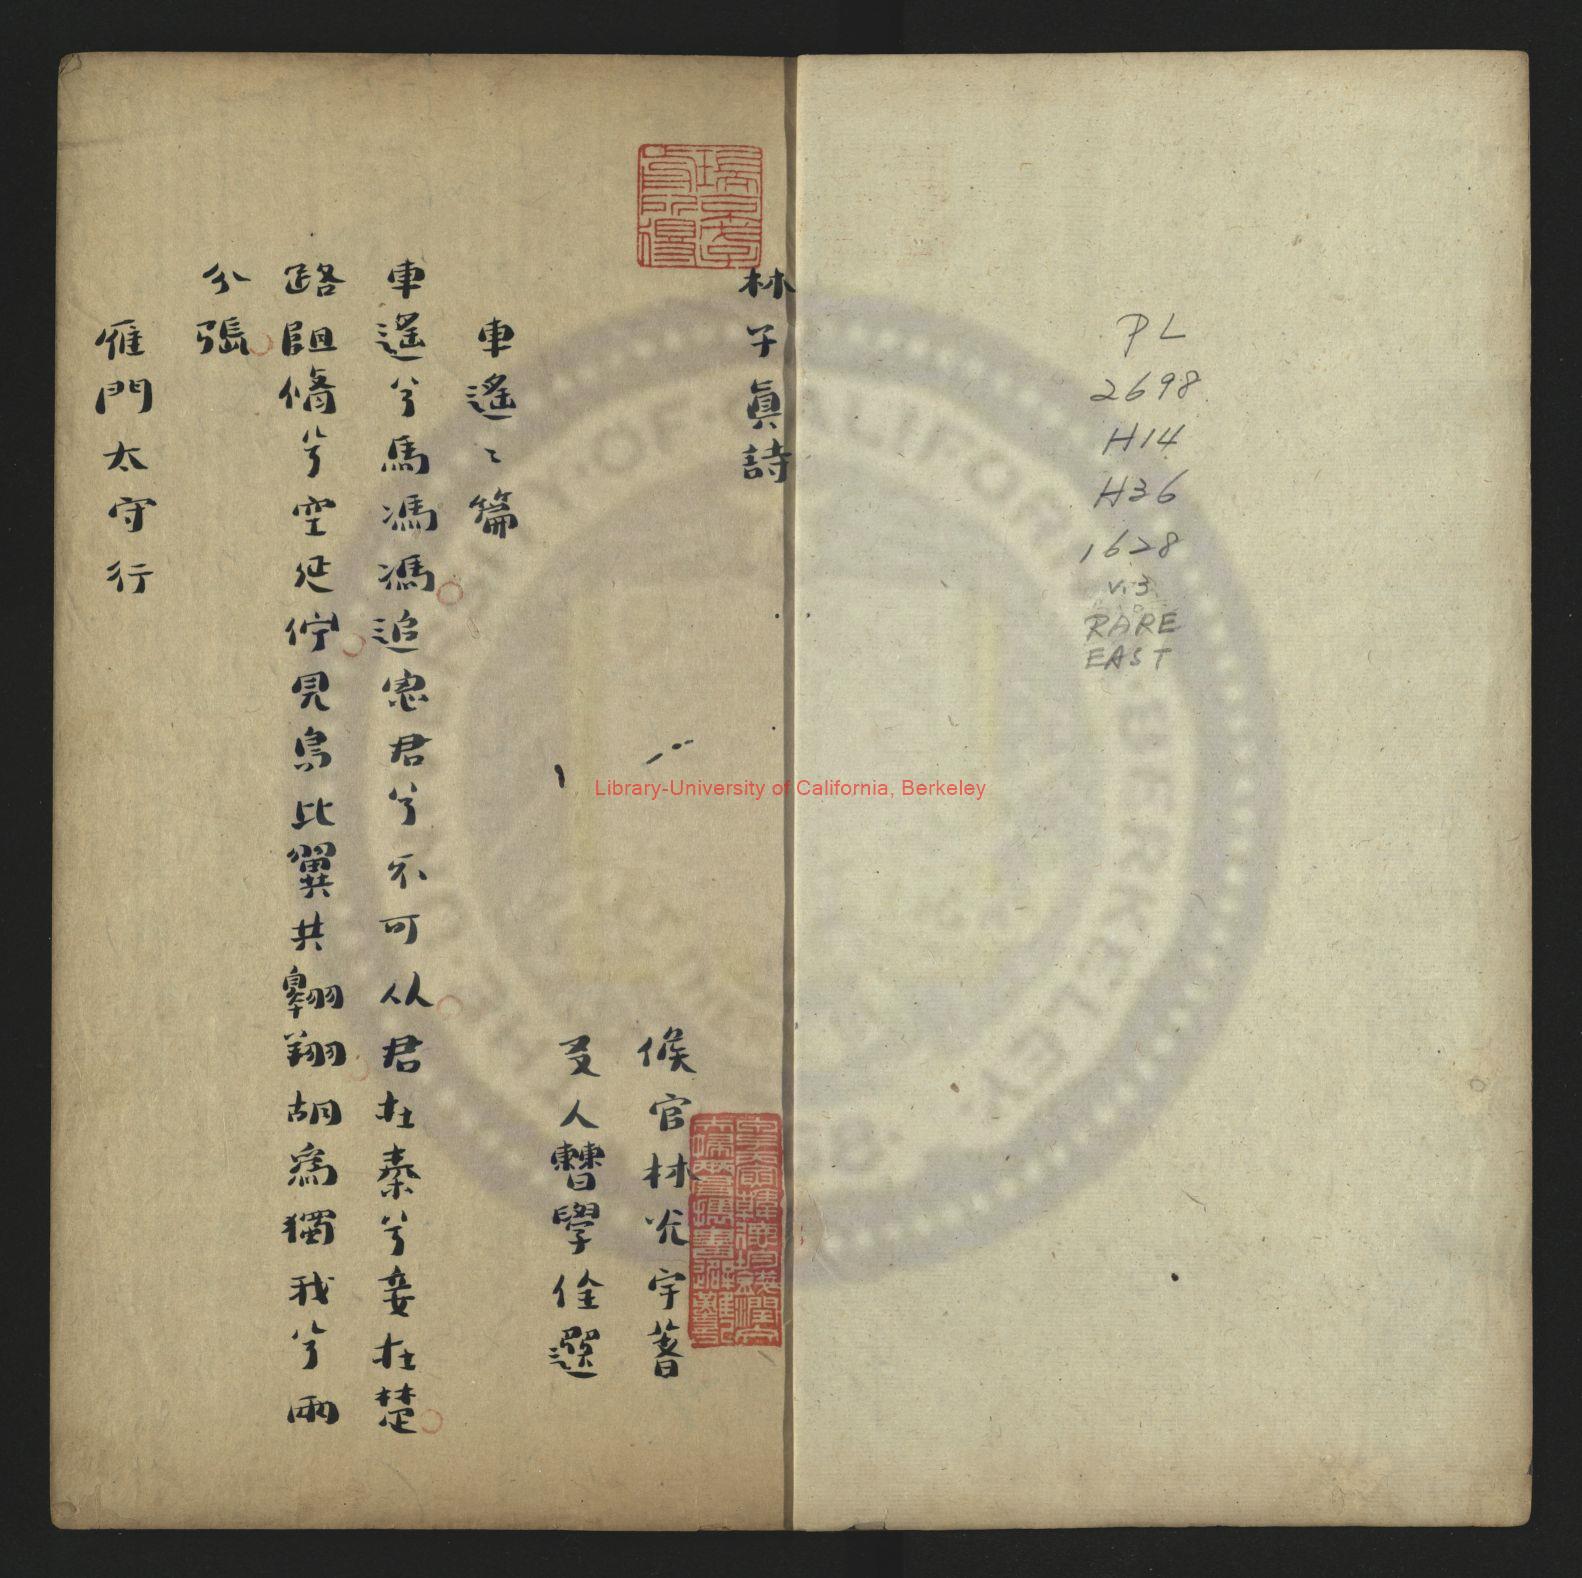 PL
2698
H14
H36
1628
v.3
RARE
EAST
林子真詩
候官林光宇著
友人曹學佺選
車遥〻篇
車遥兮馬馮馮追思君兮不可从君在秦兮妾在楚
路阻脩兮空延佇見鳥比翼共翱翔胡爲獨我兮兩
分張
雁門太守行
Library-University of California, Berkeley